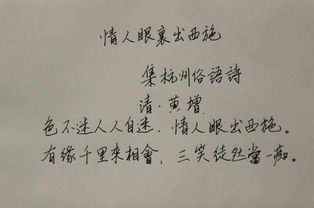 情人眼裏出西施
集杭州俗語詩
清·黄增
色不迷人人自迷．情人眼出西施。
有緣千里來相會，三笑徒然當一痴。